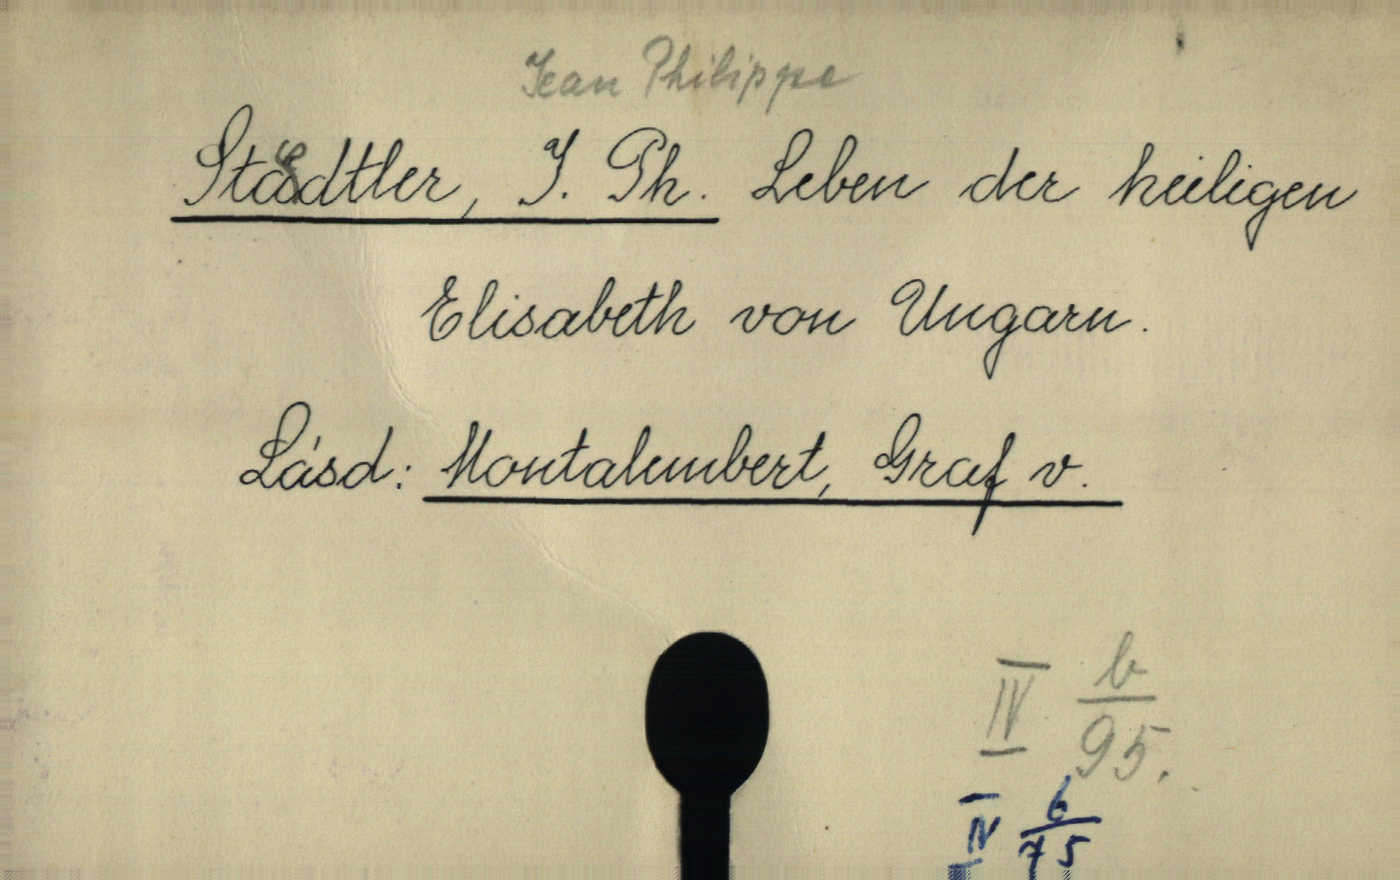 Jean Philippe
Städtler, J. Ph. Leben der heiligen
Elisabeth von Ungarn.
Lásd: Montalembert, Graf v.
IV b/95.
IV b/75